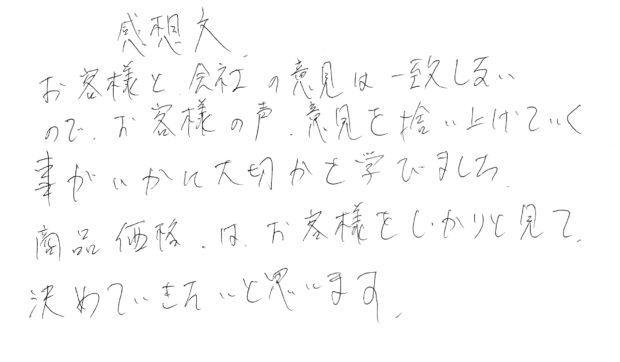 感想文.
お客様と会社の意見は一致しない
ので、お客様の声、意見を捨い上げていく
事がいかに大切かを学びました
商品価格、は、お客様をしっかりと見て、
決めていきたいと思います.